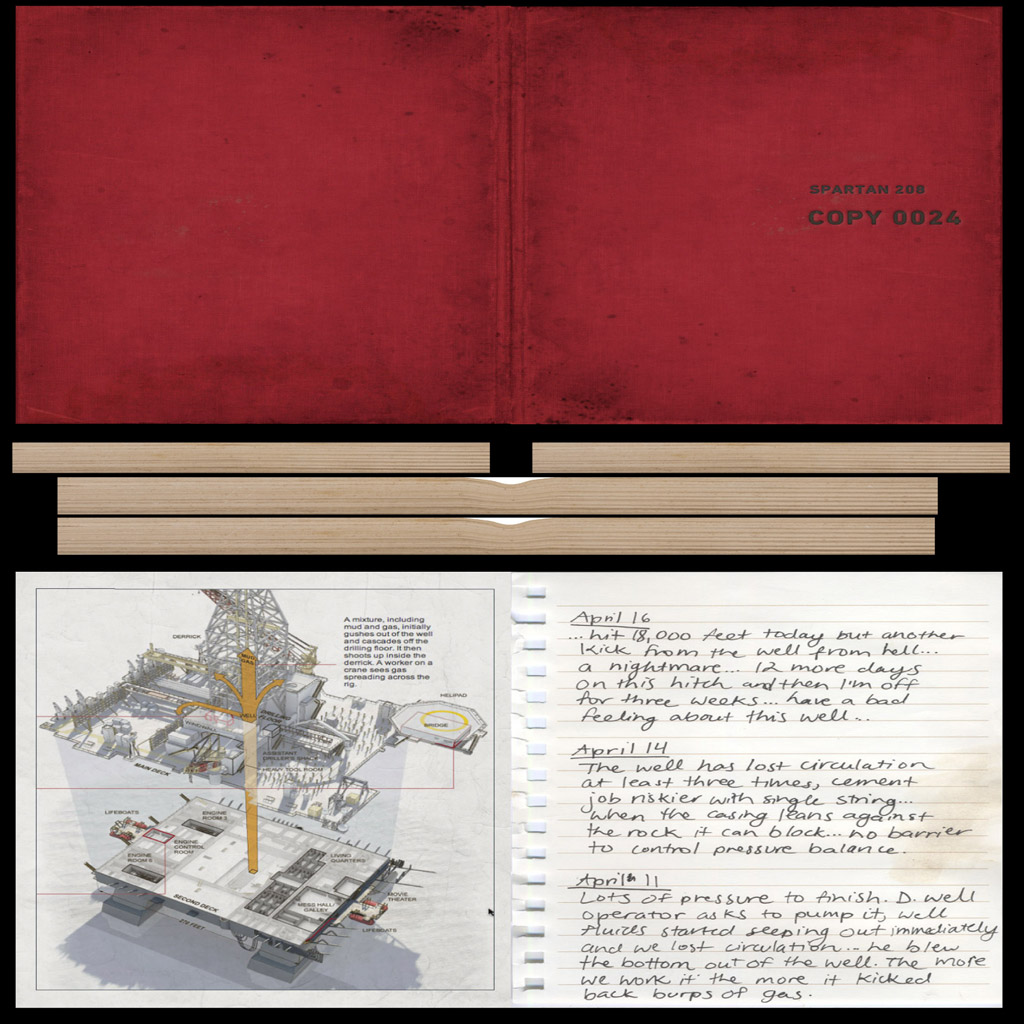 SPARTAN 208
COPY 0024
A mixture, including
mud and gas, initially
gushes out of the well
and cascades off the
drilling floor. It then
shoots up inside the
derrick. A worker on a
crane sees gas
spreading across the
rig.
DERRICK
MUD
GAS
HELIPAD
BRIDGE
WELL
FLOOR
ASSISTANT
DRILLER'S SHACK
HEAVY TOOL ROOM
MAIN DECK
LIFEBOATS
ENGINE
ROOM 3
ENGINE
CONTROL
ROOM
ENGINE
ROOM 6
LIVING
QUARTERS
SECOND DECK
MESS HALL/
GALLEY
MOVIE
THEATER
LIFEBOATS
270 FEET
April 16
... hit 18,000 feet today but another
kick from the well from hell...
a nightmare... 12 more days
on this hitch and then I'm off
for three weeks... have a bad
feeling about this well...
April 14
The well has lost circulation
at least three times, cement
job riskier with single string...
when the casing leans against
the rock it can block... no barrier
to control pressure balance.
April 11
Lots of pressure to finish. D. well
operator asks to pump it, well
fluids started seeping out immediately
and we lost circulation... he blew
the bottom out of the well. The more
we work it the more it kicked
back burps of gas.